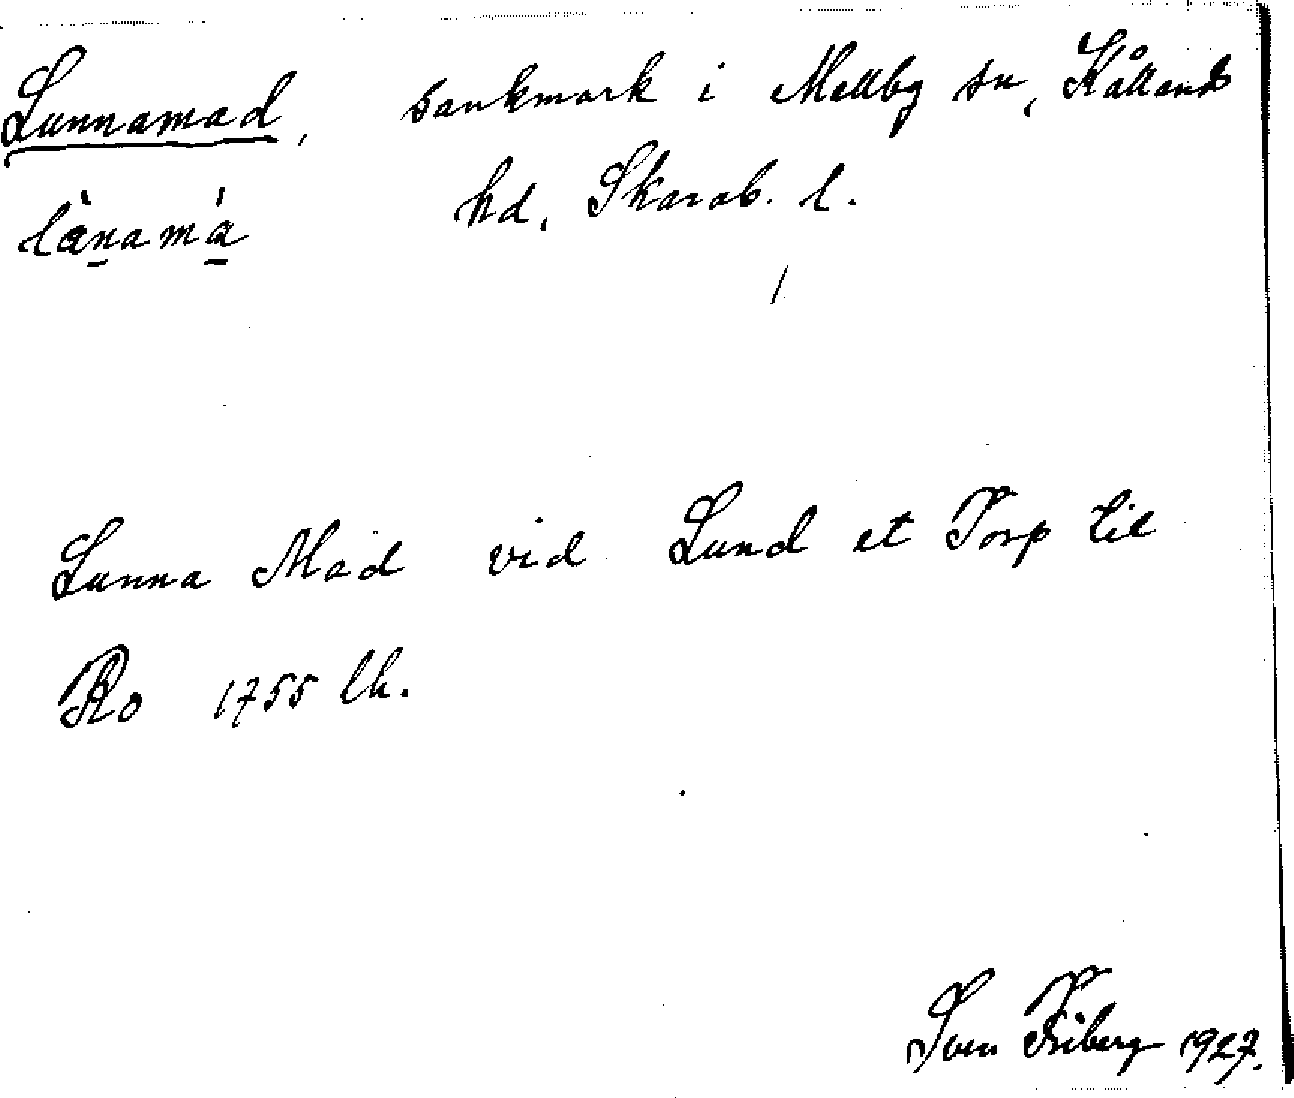 Lunnamad, sankmark i Mellby sn, Kållands
lànamá hd, Skarab. l.
Lunna Mad vid Lund et Torp til
Ro 1755 lh.
Sven Friberg 1927.